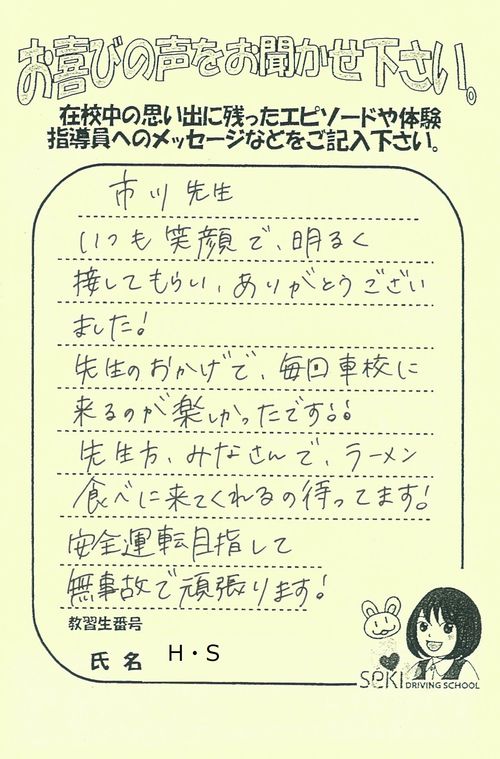 お喜びの声をお聞かせ下さい。
在校中の思い出に残ったエピソードや体験
指導員へのメッセージなどをご記入下さい。
市川先生
いつも笑顔で、明るく
接してもらい、ありがとうござい
ました!
先生のおかげで、毎回車校に
来るのが楽しかったです!!
先生方、みなさんで、ラーメン
食べに来てくれるの待ってます!
安全運転目指して
無事故で頑張ります!
教習生番号
氏名 H・S
SeKI DRIVING SCHOOL